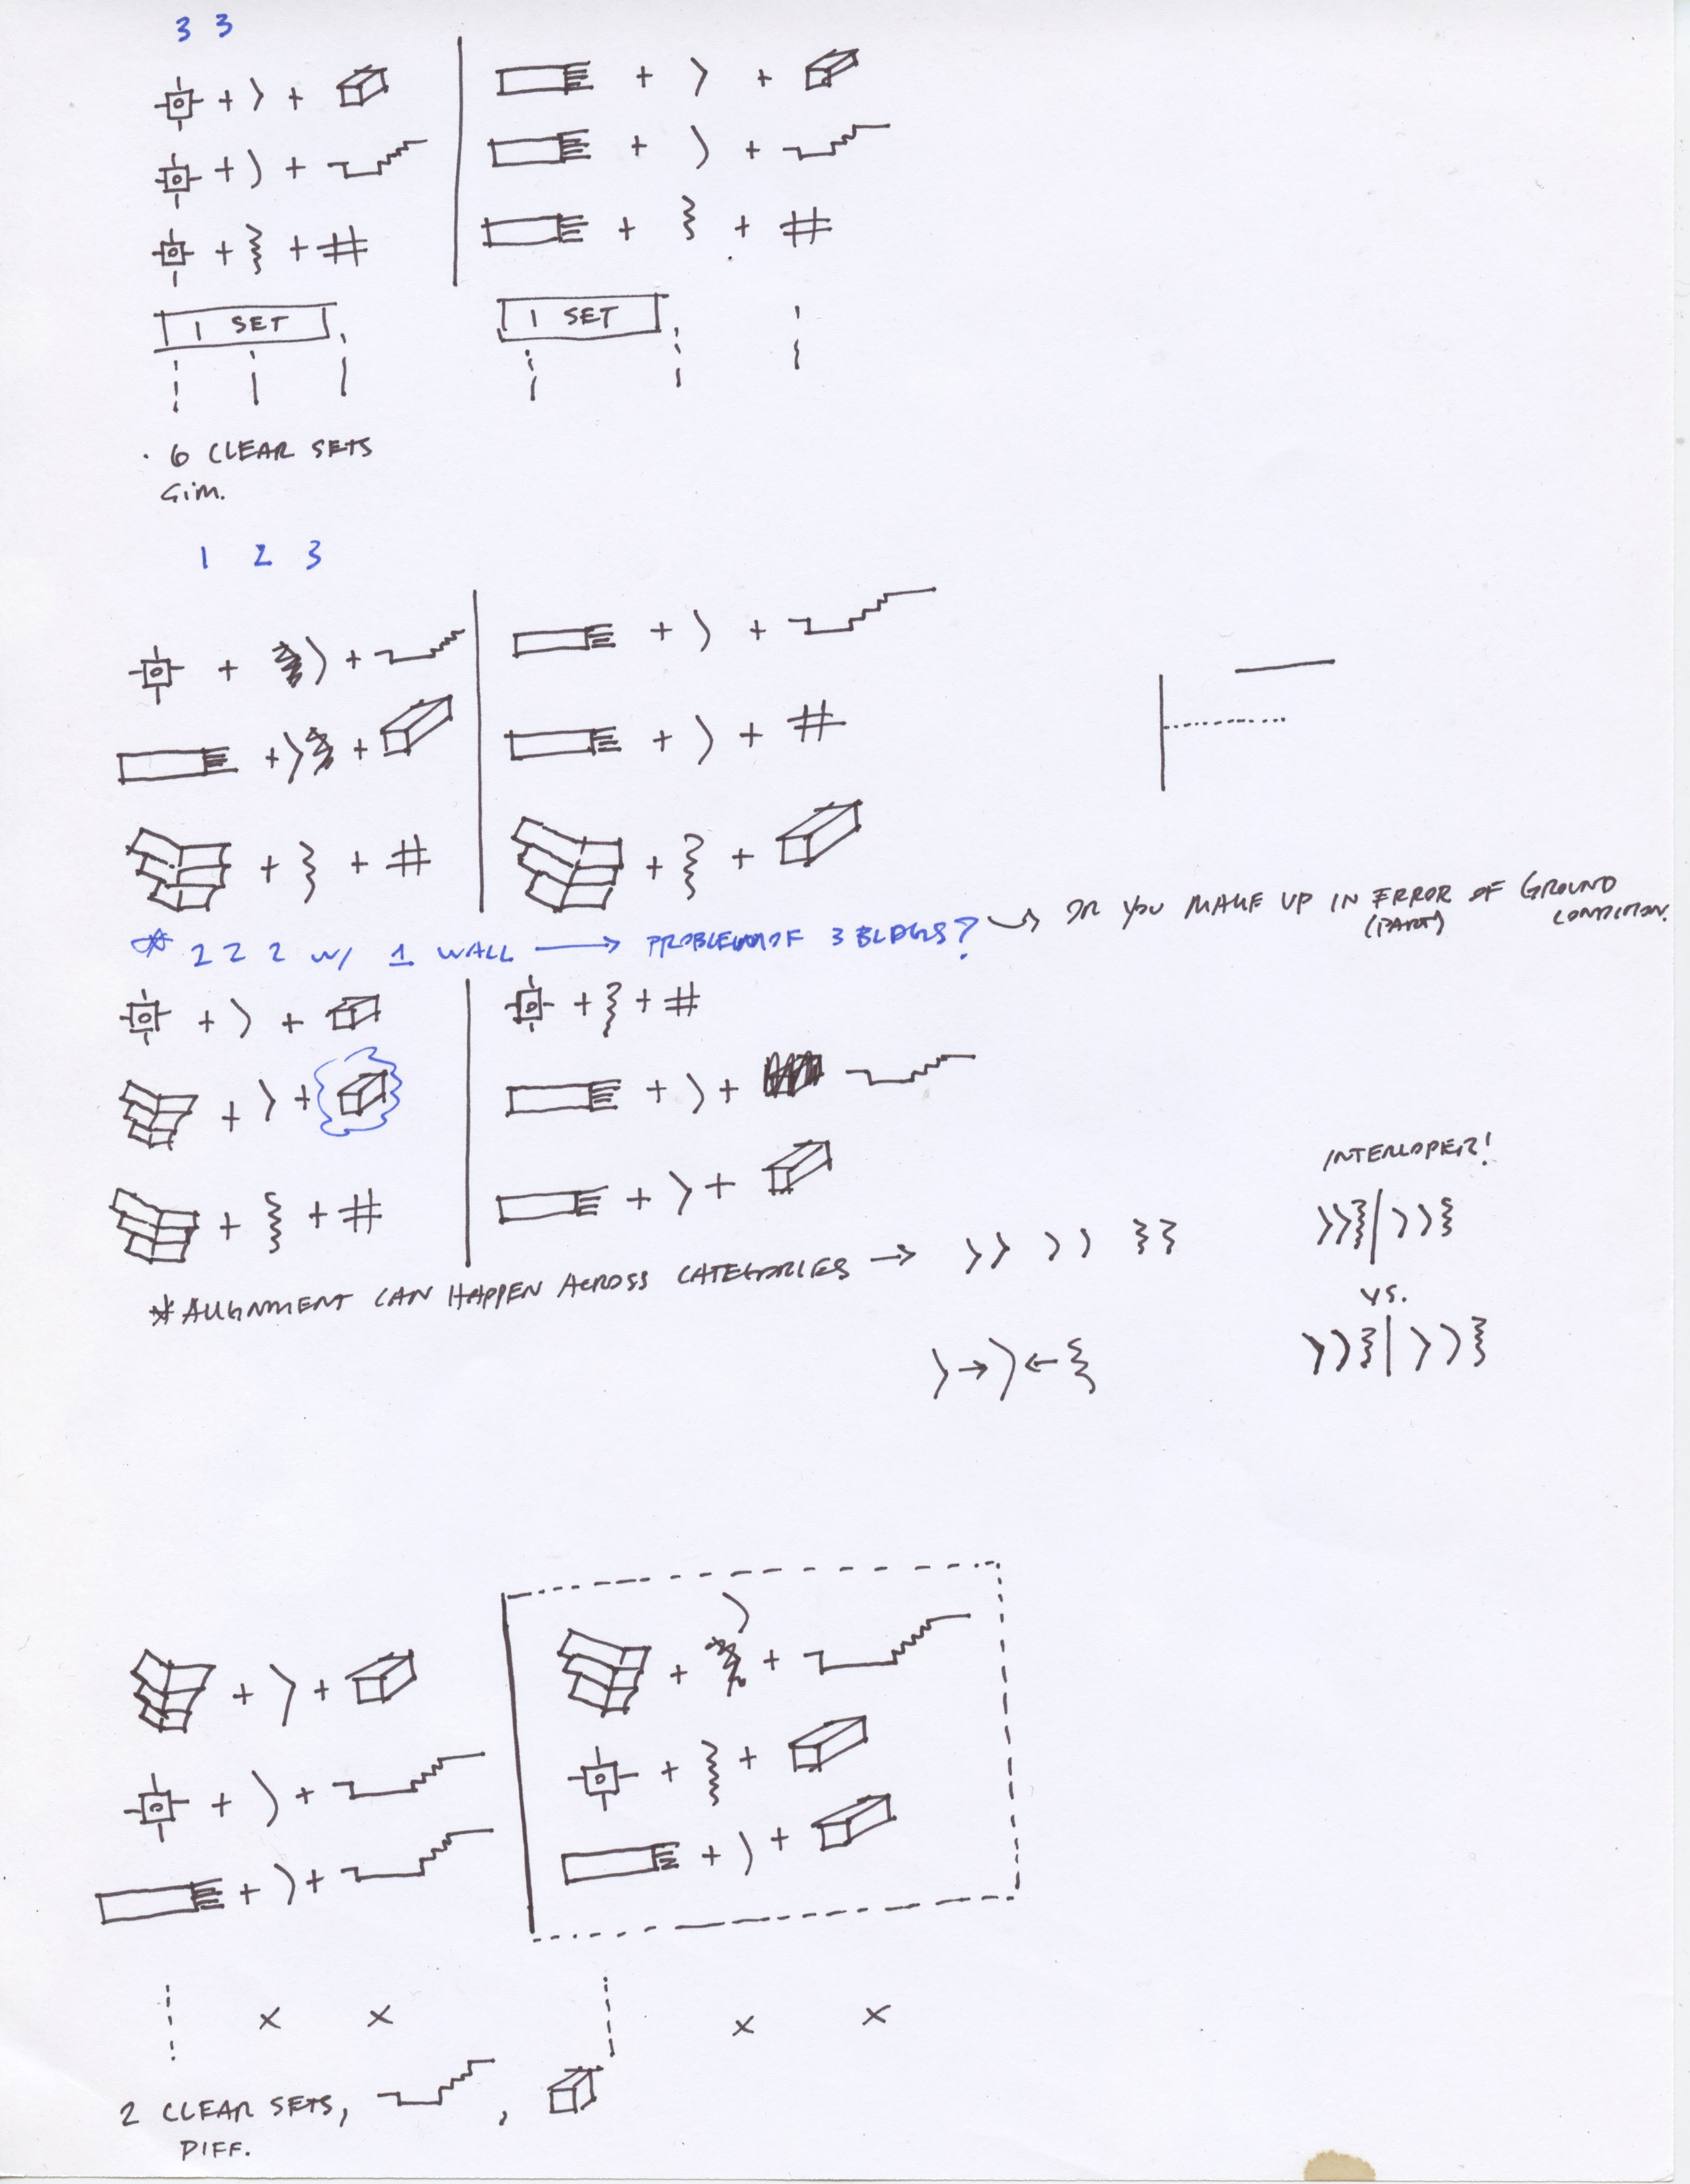 3 3
1 SET
1 SET
· 6 CLEAR SETS
1 2 3
* 2 2 2 W/ 1 WALL → PROBLEM OF 3 BLDGS? → OR YOU MAKE UP IN ERROR OF GROUND
(PART) CONDITION.
INTERLOPER!
* ALIGNMENT CAN HAPPEN ACROSS CATEGORIES →
VS.
2 CLEAR SETS,
DIFF.